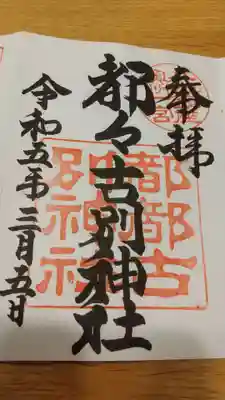 奉拝
都々古別神社
都都古
別神社
令和五年三月五日